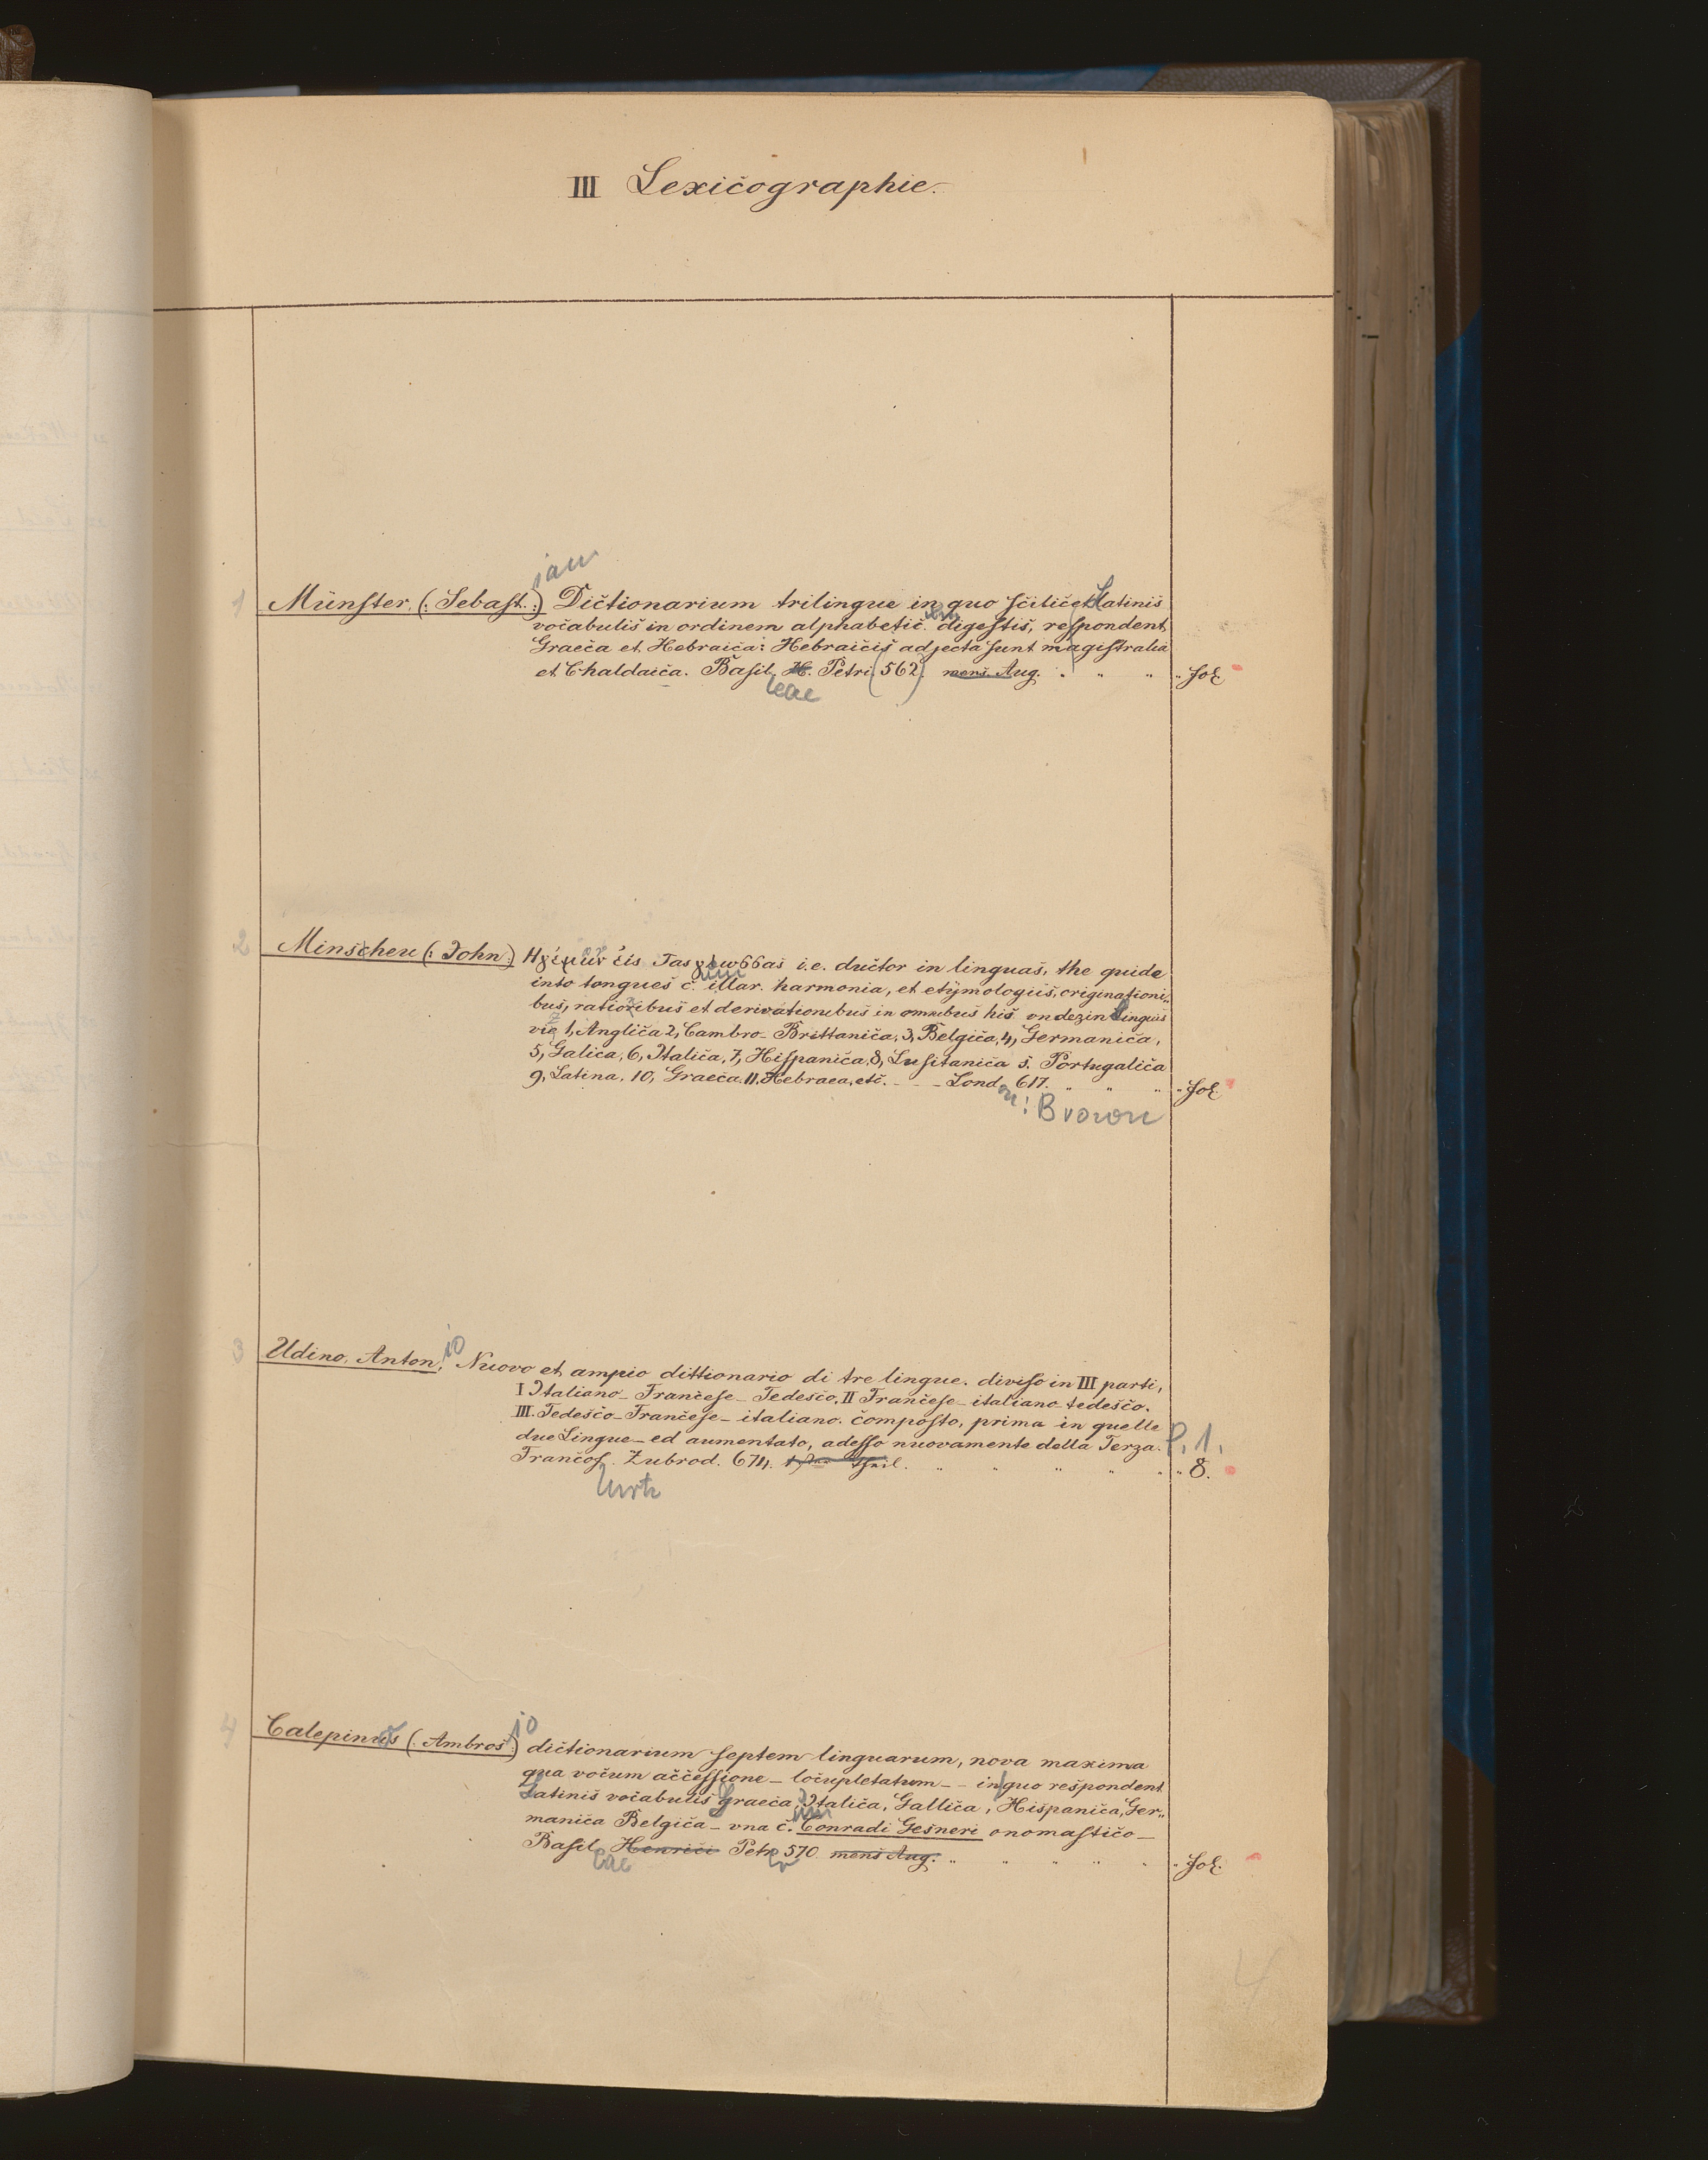 III Lexicographie.
1 Münster, (: Sebast. :) ian Dictionarium trilingue in quo scilicet Latinis
vocabulis in ordinem alphabetic. um digestis, respondent
Graeca et Hebraica: Hebraicis adjecta sunt magistralia
et Chaldaica. Basil. H. Petri (562) mens. Aug. " " " " fol.
leae
2 Minscheu (: John :) i.e. ductor in linguas, the guide
into tongues c. illar. harmonia, et etymologiis, originationi„
bus, rationibus et derivationibus in omnibus his undezin Linguis
viz 1, Anglica 2, Cambro-Brittanica, 3, Belgica, 4, Germanica,
5, Galica, 6, Italica, 7, Hispanica, 8, Lusitanica s. Portugalica
9, Latina, 10, Graeca. 11, Hebraea, etc. - - - Lond. 617. " " " " fol.
on: Brown
3 Udino, Anton, io Nuovo et ampio dittionario di tre lingue. diviso in III parti,
I Italiano-Francese-Tedesco, II Francese-italiano-tedesco.
III. Tedesco-Francese-italiano. composto, prima in quelle
due Lingue-ed aumentato, adesso nuovamente della Terza. P. 1.
Francof. Zubrod. 674. Theil. " " " " " " 8.
furth
4 Calepinus (: Ambros :) io dictionarium septem linguarum, nova maxima
qua vocum accessione - locupletatum - - in quo respondent
Latinis vocabulis graeca, Italica, Gallica, Hispanica, Ger„
manica Belgica - vna c. um Conradi Gesneri onomastico -
Basil. Henrici Petr 570. mens Aug. " " " " " " fol.
eae
4